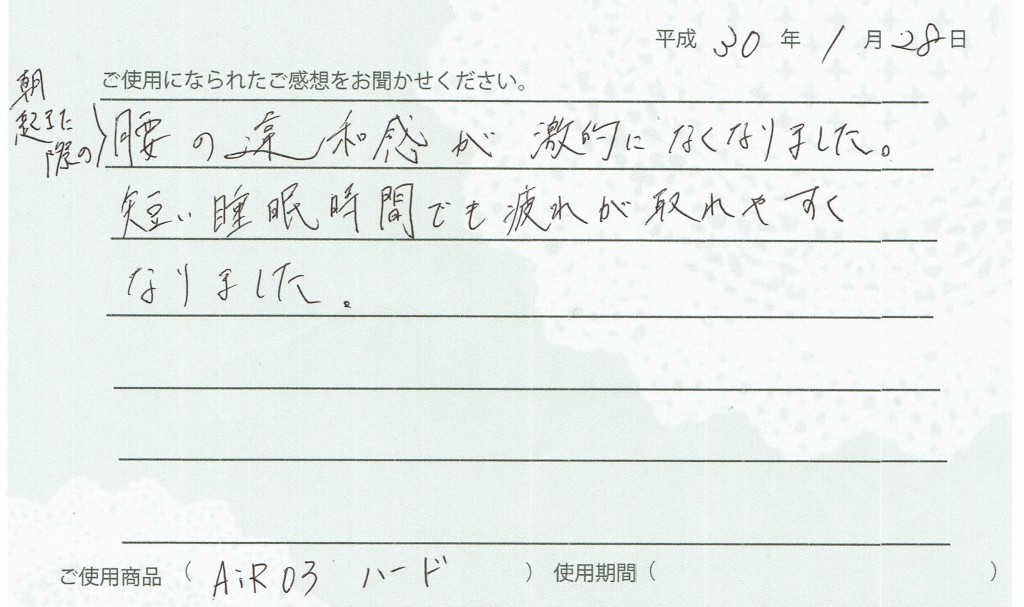 平成 30 年 1 月 28 日
ご使用になられたご感想をお聞かせください。
朝
起きた
際の
腰の違和感が激的になくなりました。
短い睡眠時間でも疲れが取れやすく
なりました。
ご使用商品（ AiR 03 ハード ） 使用期間（ ）